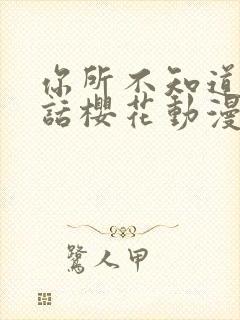 你所不知道
話櫻花動漫
鷺人甲